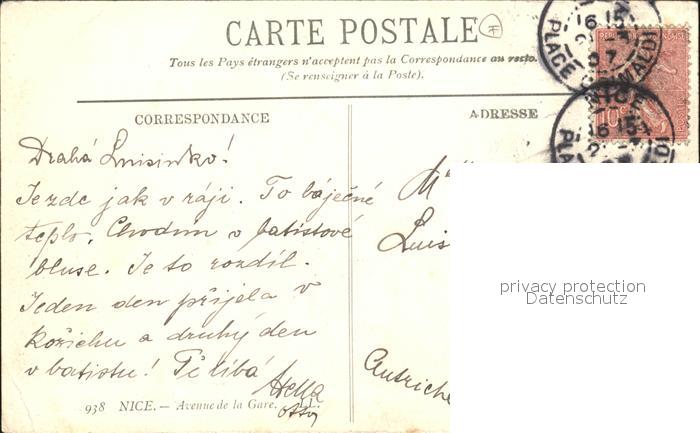 CARTE POSTALE
Tous les Pays étrangers n'acceptent pas la Correspondance au recto.
(Se renseigner à la Poste).
CORRESPONDANCE
ADRESSE
NICE
PLACE GARIBALDI
16 15
10c
Drahá Luisinko!
Je zde jak v ráji. To báječné
teplo. Chodím v batistové
bluse. Je to rozdíl.
Jeden den přijela v
kožichu a druhý den
v batistu! Tě líbá
Hella
Luis
Autriche
privacy protection
Datenschutz
938 NICE. — Avenue de la Gare. LL.